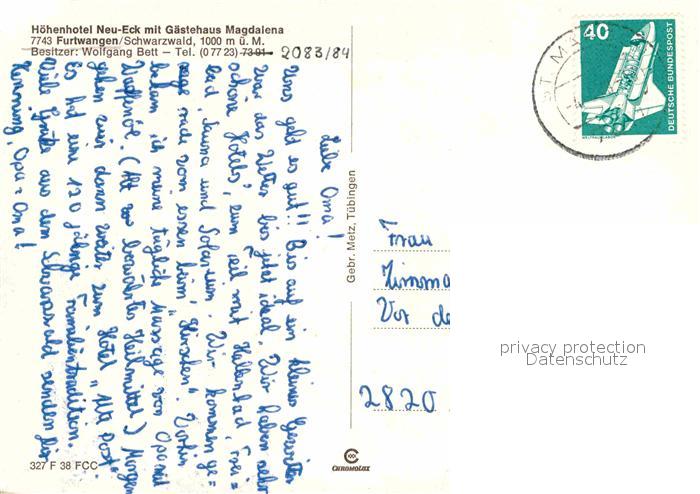 Höhenhotel Neu-Eck mit Gästehaus Magdalena
7743 Furtwangen/Schwarzwald, 1000 m ü. M.
Besitzer: Wolfgang Bett – Tel. (0 77 23) 73 91 - 2083/84
Liebe Oma!
Uns geht es gut!! Bis auf ein kleines Gewitter
war das Wetter bis jetzt ideal. Wir haben sehr
schöne Hotels, zum Teil mit Hallenbad, Frei=
bad, Sauna und Solarium. Wir kommen ge=
rade vom essen beim "Hirschen". Vorhin
bekam ich meine tägliche Massage von Opa mit
(Alt bewährtes Heilmittel) Morgen
gehen wir dann weiter zum Hotel "Alte Post".
Es hat eine 120 jährige Familientradition.
Viele Grüße aus dem Schwarzwald senden Dir
Henning, Opa + Oma!
Gebr. Metz, Tübingen
40
DEUTSCHE BUNDESPOST
ST. M
Frau
Zimma
Vor de
2820
privacy protection
Datenschutz
327 F 38 FCC
CHROMOLUX